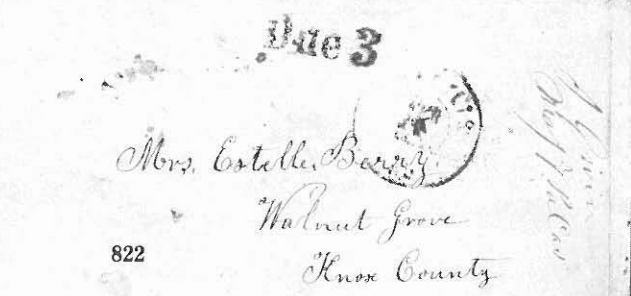 Due 3
Mrs. Estelle Barry
Walnut Grove
822
Knox County